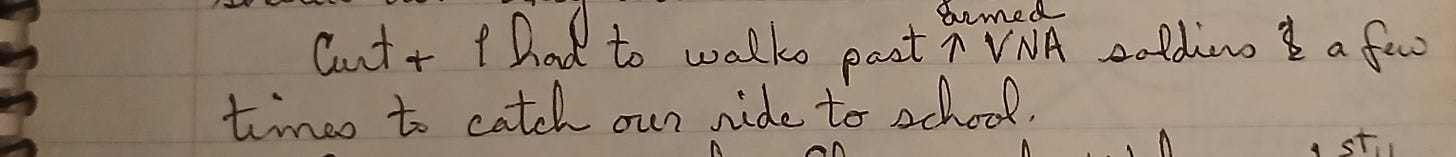 armed
Curt + I had to walks past ↑ VNA soldiers & a few
times to catch our ride to school.
1st